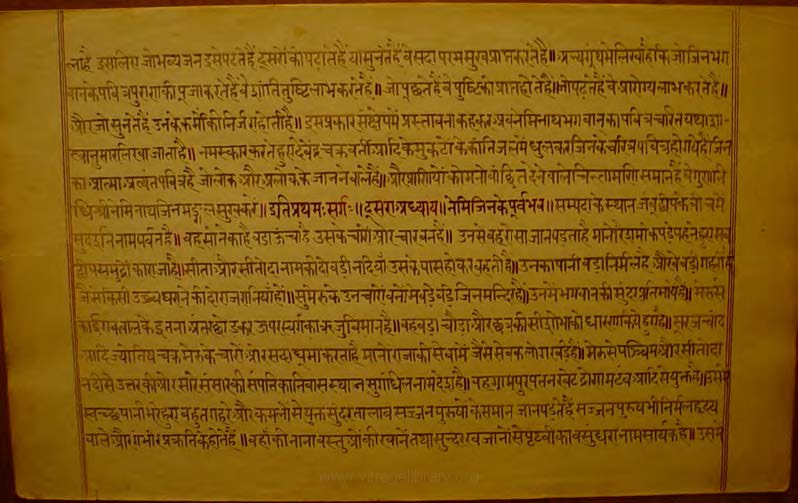 लाहै इसलिए जोभव्यजन इसेपढतेहैं दूसरोंकोपढातेहैं यासुनतेहैं वेसदा परमसुखप्राप्तकरतेहैं॥ अन्यग्रंथमेलिखाहैकि जोजिनभग
वानकेपवित्रपुराणकीपूजाकरतेहैं वे शांतितुष्टिलाभकरतेहैं॥ जोपूछतेहैं वे पुष्टिकोप्राप्तहोतेहैं॥ जोपढतेहैं वे आरोग्यलाभकरतेहैं॥
औरजोसुनतेहैं उनकेकर्मोकीनिर्जराहोतीहै॥ इसप्रकारसंक्षेपमें प्रस्तावनाकहकर अबनेमिनाथभगवानका पवित्रचरित्रयथाशा
स्त्रानुसारलिखाजाताहै॥ नमस्कारकरतेहुए देवेंद्रचक्रवर्ती आदिकेमुकुटोंकेकांतिजलमेंधुलकर जिनकेचरित्रपवित्रहोगयेहैंजिन
काआत्माअत्यंतपवित्रहै जोलोकऔरअलोककेजाननेवालेहैं॥ औरप्राणियोंकोमनोवांछितदेनेवालेचिंतामणिसमानहैं वेगुणानि
धिश्रीनेमिनाथजिनमङ्गलसुखकरें॥ इतिप्रथमःसर्गः॥ दूसराअध्याय॥ नेमिजिनकेपूर्वभव॥ सम्पदाकेस्थान जंबूद्वीपकेबीचमें
सुदर्शननामपर्वतहै॥ वहसोनेकाहैबडाऊंचाहै उसकेचारोंओरचारवनहैं॥ उनसेवहऐसाजानपडताहै मानो
द्वीपसमुद्रोंकाराजाहै॥ सीताऔरसीतोदानामकीदोबडीनदियां उसकेपासहोकरबहतीहैं॥ उनकापानीबडानिर्मलहै औरवेबडी
जैसेकिसीउच्चघरानेकीदोराजरानियांहों॥ सुमेरुकेउनचारोंवनोंमेंबडेबडेजिनमन्दिरहैं॥ उनमेंभगवानकीसुंदरप्रतिमायेंहैं॥ मेरुसे
इतनाअंतरछोडकर ऊपरस्वर्गकाऋजुविमानहै॥ वहबडाचौडाऔरछत्रकीसीशोभाकोधारणकियेहुएहै॥ सूरजचांद
आदिज्योतिषचक्रमेरुकेचारोंओरसदाघूमाकरताहै मानोराजाकीसेवामेंजैसेसेवकलोगखडेहों॥ मेरुसेपश्चिमऔरसीतोदा
नदीसेउत्तरकीओर सारेसंसारकीसंपत्तिकानिवासस्थान सुगंधिलनामदेशहै॥ वहग्रामपुरपतनखेटद्रोणमटंबआदिसेयुक्तहै॥ उसमें
स्वच्छपानीभरेहुएबहुतगहरेऔरकमलोंसेयुक्तसुंदरतालाब सज्जनपुरुषोंकेसमान जानपडतेहैं सज्जनपुरुषभीनिर्मलहृदय
वालेऔरगंभीरप्रकृतिकेहोतेहैं॥ वहांकीनानावस्तुओंकीखानेंतथासुन्दरखजानोंसेपृथ्वीकावसुंधरानामसार्थकहै॥ उसमें